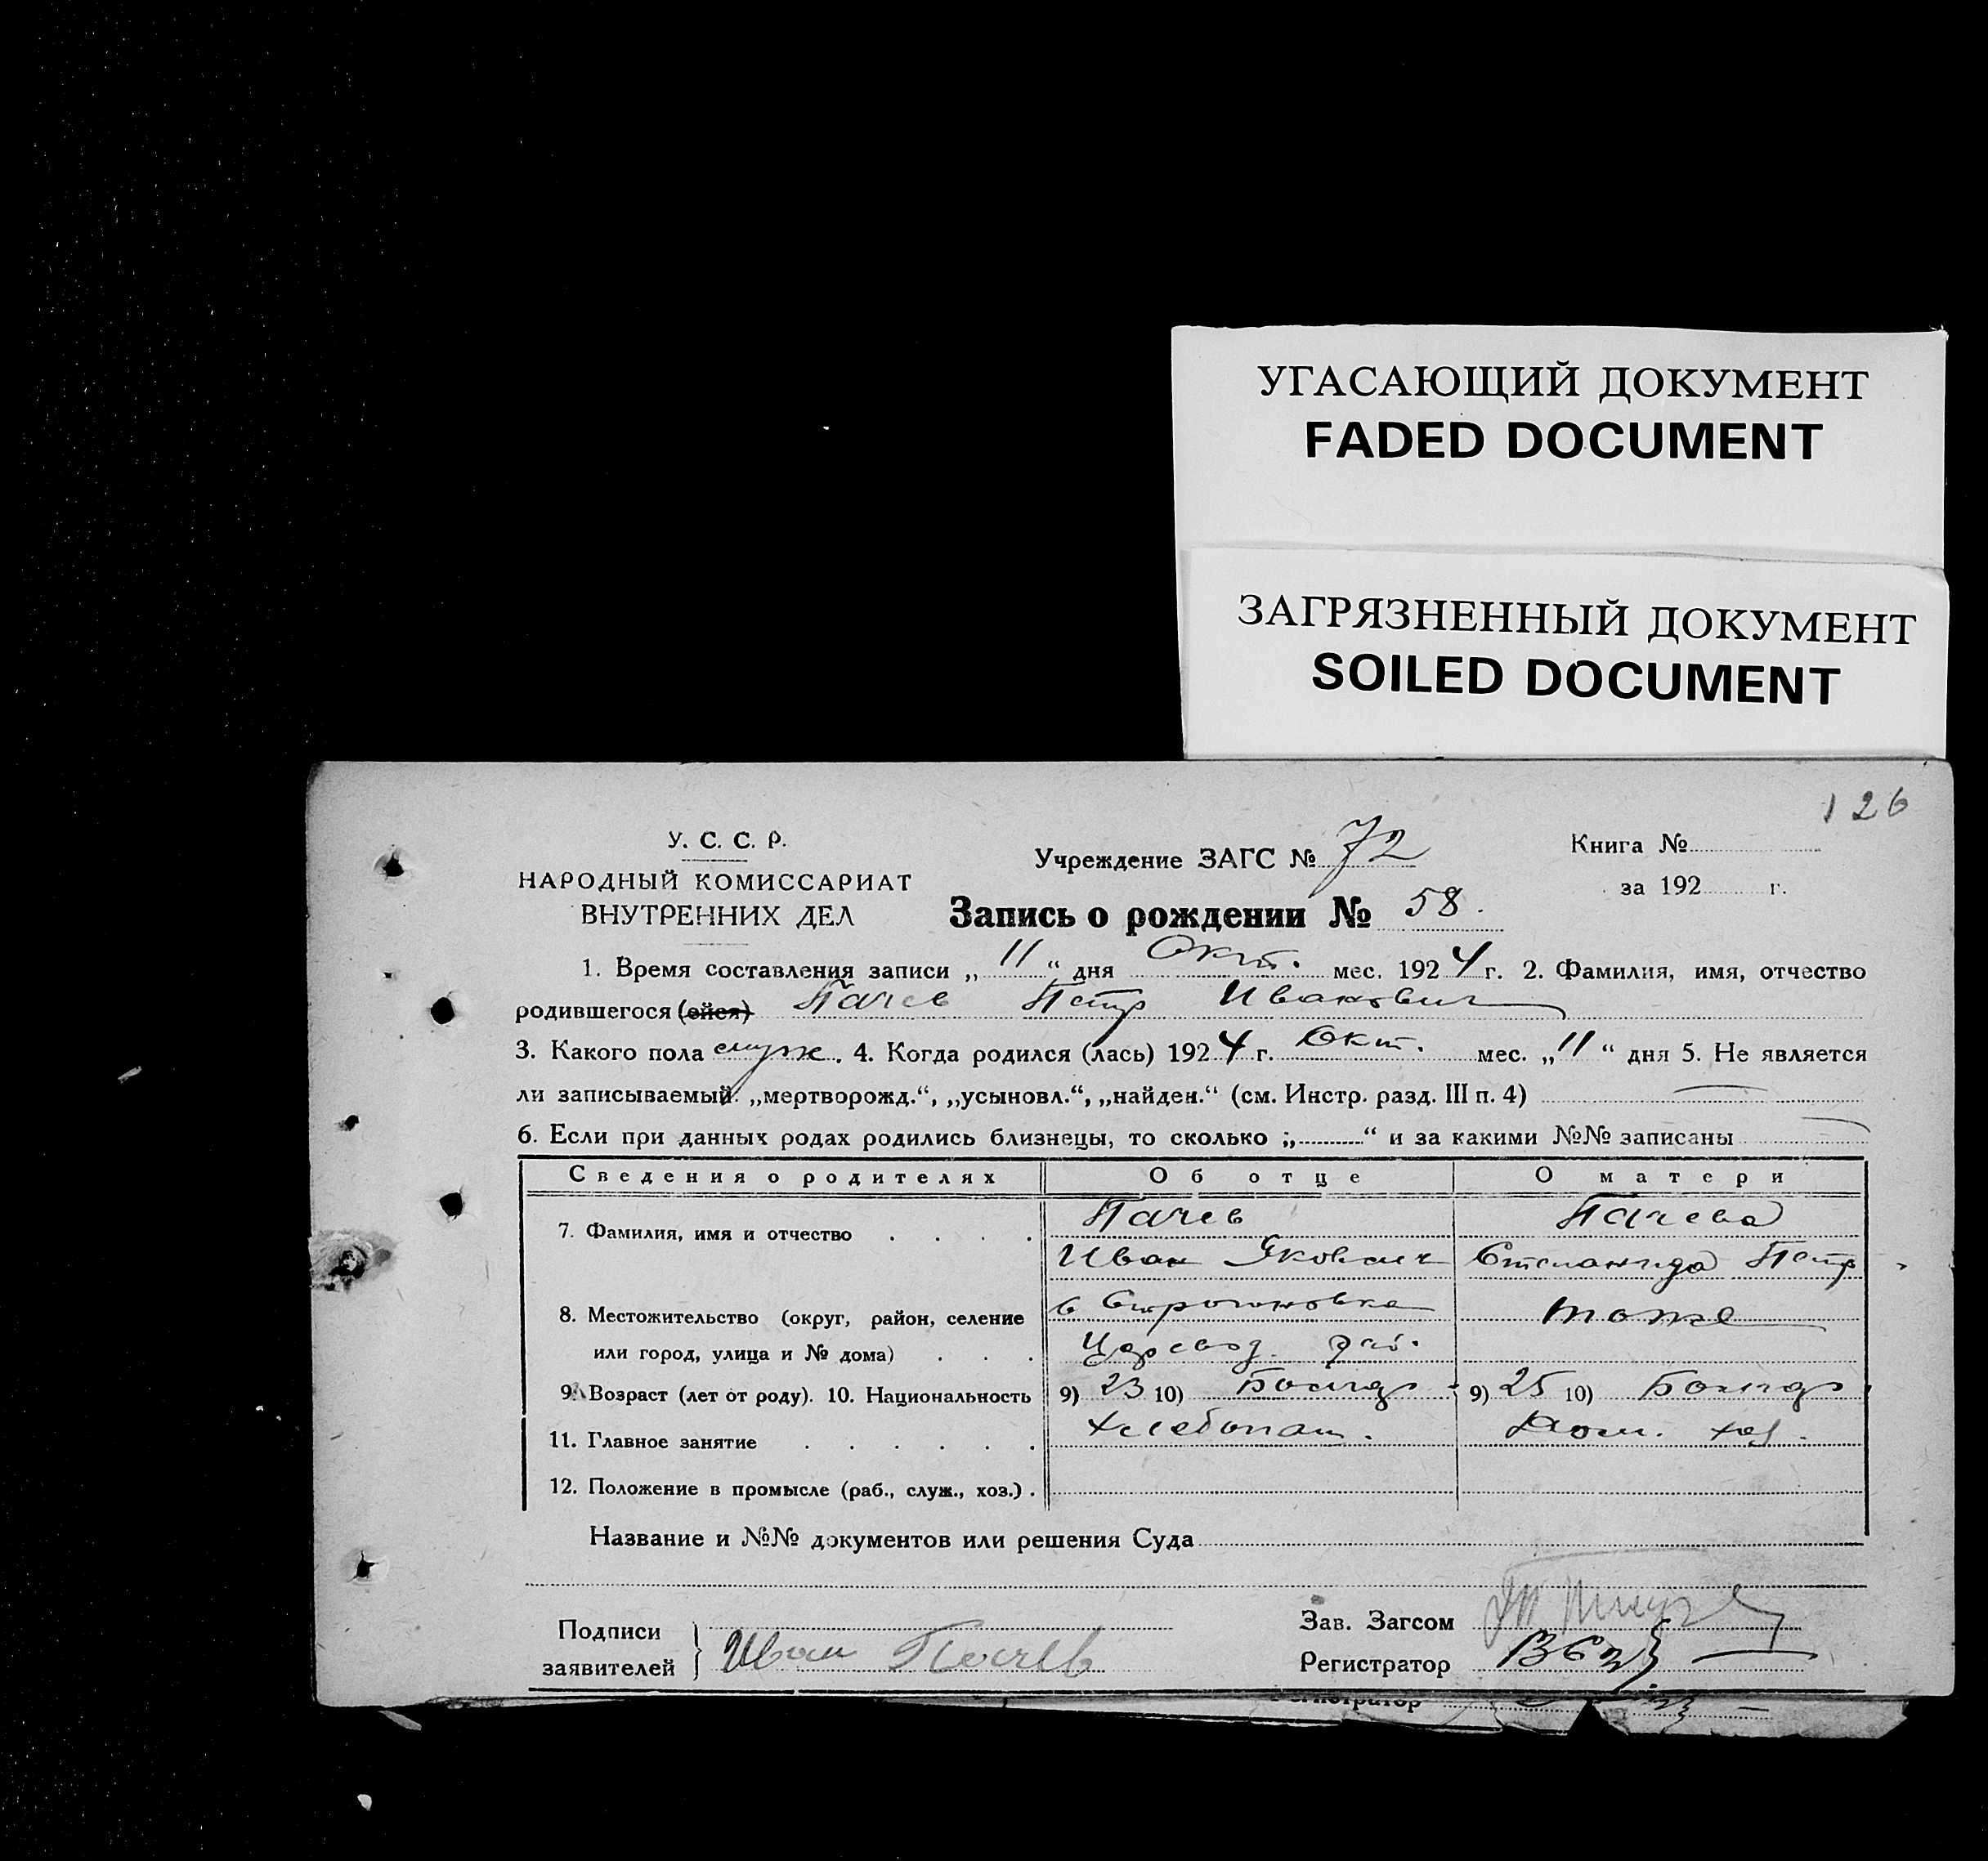 УГАСАЮЩИЙ ДОКУМЕНТ
FADED DOCUMENT
ЗАГРЯЗНЕННЫЙ ДОКУМЕНТ
SOILED DOCUMENT
126
У. С. С. Р.
НАРОДНЫЙ КОМИССАРИАТ
ВНУТРЕННИХ ДЕЛ
Учреждение ЗАГС № 72
Книга №
за 192 г.
Запись о рождении № 58.
1. Время составления записи „ 11 “ дня Окт. мес. 1924 г. 2. Фамилия, имя, отчество
родившегося (ейся) Пачев Петр Иванович
3. Какого пола муж. 4. Когда родился (лась) 1924 г. Окт. мес. „11“ дня 5. Не является
ли записываемый: „мертворожд.“, „усыновл.“, „найден.“ (см. Инстр. разд. III п. 4)
6. Если при данных родах родились близнецы, то сколько „ “ и за какими №№ записаны
Сведения о родителях Об отце О матери
7. Фамилия, имя и отчество . . . . Пачев Пачева
Иван Яковлич Степанида Петр
8. Местожительство (округ, район, селение с Строгоновка тоже
или город, улица и № дома) . . . Царевод. рай.
9. Возраст (лет от роду). 10. Национальность 9) 23 10) Болгар 9) 25 10) Болгар
11. Главное занятие . . . . . . Хлебопаш. Дом. хоз.
12. Положение в промысле (раб., служ., хоз.) .
Название и №№ документов или решения Суда
Подписи
заявителей } Иван Пачев
Зав. Загсом
Регистратор
Регистратор